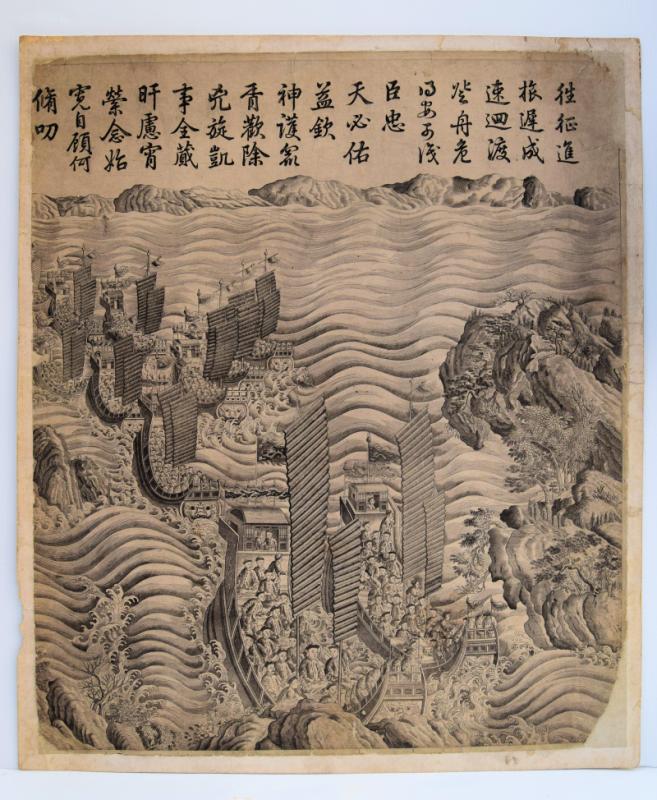 徃征進
旅遲成
速迴渡
登舟危
得安可識
臣忠
天必佑
益欽
神護衆
胥歡除
兇旋凱
事全蕆
旰慮宵
縈念始
寬自顧何
脩叨